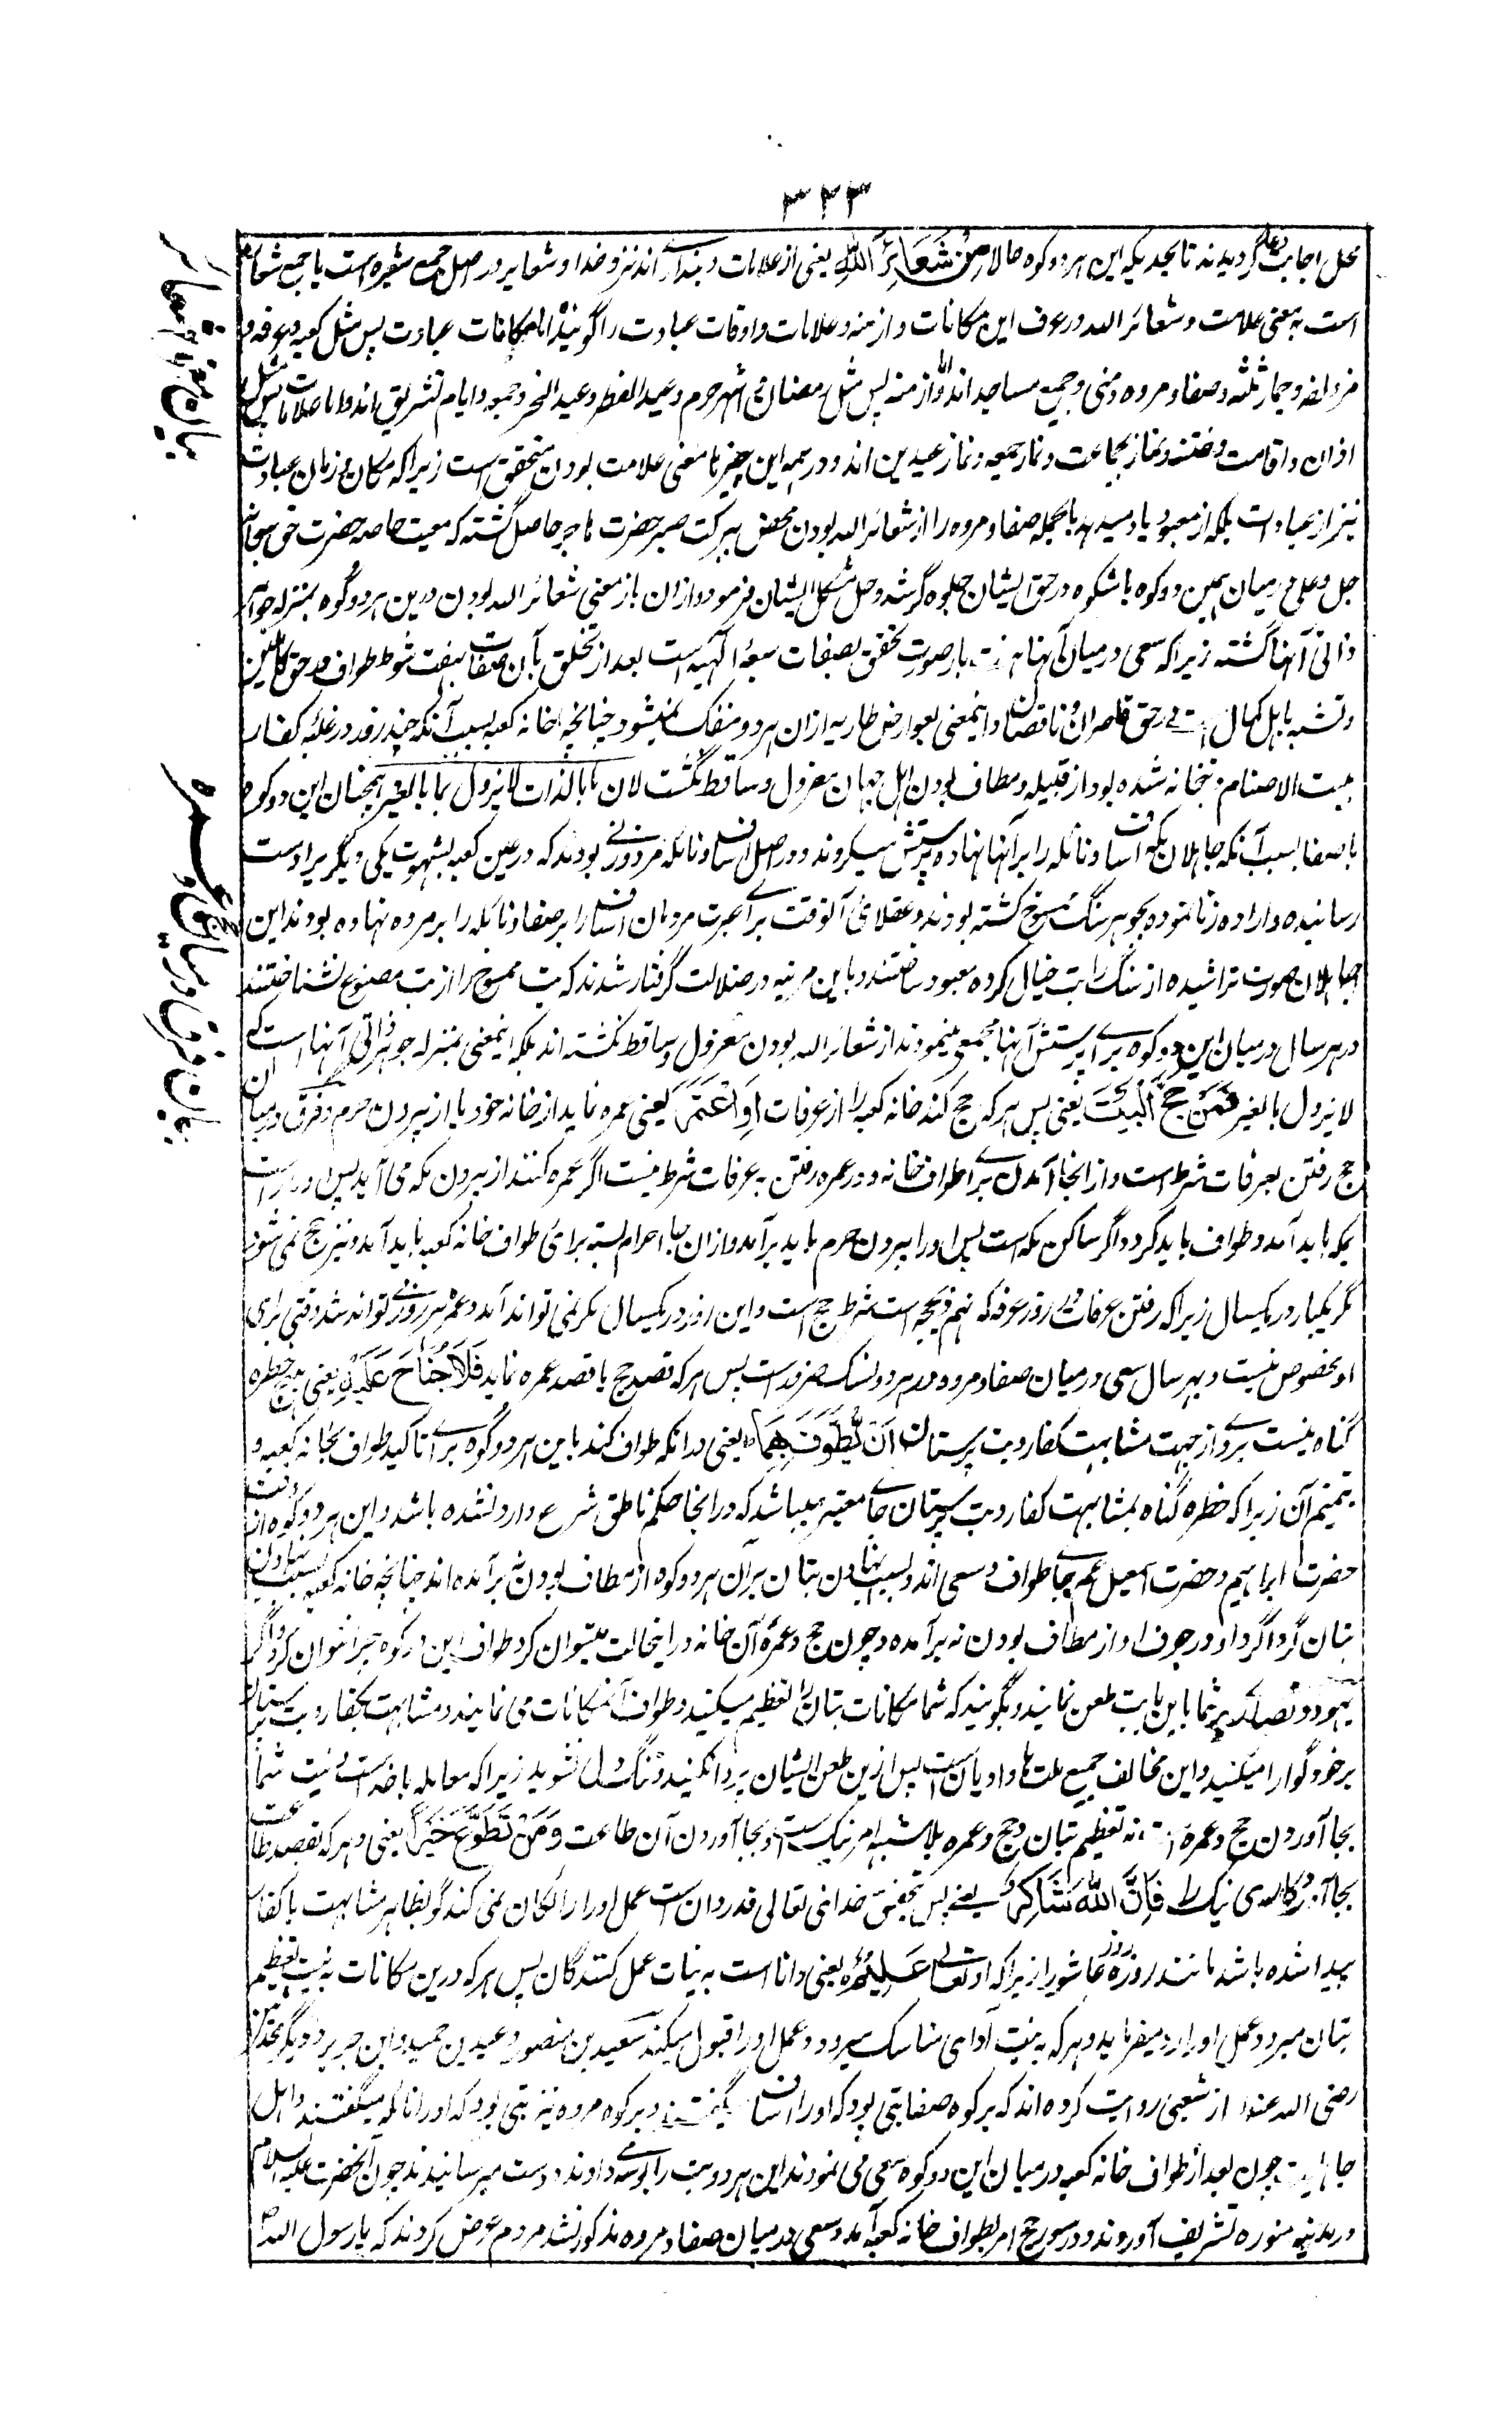 ۳۲۳
محل اجابت دعا گردیدند تا بحدیکه این هر دو کوه حالا من شَعَائِرِ اللّٰهِ یعنی از علامات دینداری اند نزد خدا و شعایر در اصل جمع شعیره است یا جمع شعار
است بمعنی علامت و شعائر الله در عرف این مکانات و ازمنه و علامات و اوقات عبادت را گویند اما مکانات عبادت پس مثل کعبه و عرفه و
مزدلفه و جمار ثلثه و صفا و مروه و منی و جمیع مساجد اند و اما ازمنه پس مثل رمضان و اشهر حرم و عید الفطر و عید النحر و جمعه و ایام تشریق اند و اما علامات پس مثل
اذان و اقامت و ختنه و نماز بجماعت و نماز جمعه و نماز عیدین اند و در همه این چیزها معنی علامت بودن متحقق است زیرا که مکان و زمان عبادت
نیز از عبادت بلکه از معبود یاد میدهد بالجمله صفا و مروه را از شعائر الله بودن محض ببرکت صبر حضرت هاجر حاصل گشته که معیت خاصه حضرت حق سبحانه
جل و علی در میان همین دو کوه باشکوه در حق ایشان جلوه گر شد و حل مشکل ایشان فرمود و ازان باز معنی شعائر الله بودن درین هر دو کوه بمنزله جواهر
ذاتی آنها گشته زیرا که سعی در میان آنها هفت بار صورت تحقق بصفات سبعه الهیه است بعد از تخلق بآن صفات بهفت شوط طواف در حق کاملین
و تشبه باهل کمال است در حق قاصران و ناقصان و اینمعنی بعوارض طاریه ازان هر دو منفک نمیشود چنانچه خانه کعبه بسبب آنکه چند روز در غلبه کفار
بیت الاصنام و بتخانه شده بود از قبله و مطاف بودن اهل جهان معزول و ساقط نگشت لان ما بالذات لا یزول بما بالغیر همچنان این دو کوه
باصفا بسبب آنکه جاهلان مکه اساف و نائله را بر آنها نهاده پرستش میکردند و در اصل اساف و نائله مرد و زنی بودند که در عین کعبه بشهوت یکی دیگریرا دست
رسانیده و اراده زنا نموده بجوهر سنگ مسخ گشته بودند و عقلای آنوقت برای عبرت مردمان اساف را بر صفا و نائله را بر مروه نهاده بودند این
جاهلان صورت تراشیده از سنگ را بت خیال کرده معبود ساختند و باین مرتبه در ضلالت گرفتار شدند که بت ممسوخ را از بت مصنوع نشناختند
در هر سال در میان این دو کوه برای پرستش آنها مجمع مینمودند از شعائر الله بودن معزول و ساقط نگشته اند بلکه اینمعنی بمنزله جوهر ذاتی آنها است که
لا یزول بالغیر فَمَنْ حَجَّ الْبَیْتَ یعنی پس هر که حج کند خانه کعبه را از عرفات اَوِ اعْتَمَرَ یعنی عمره نماید از خانه خود یا از بیرون حرم و فرق در میان
حج رفتن بعرفات شرط است و از انجا آمدن برای طواف خانه و در عمره رفتن بعرفات شرط نیست اگر عمره کننده از بیرون مکه می آید پس او را راست
بمکه باید آمد و طواف باید کرد و اگر ساکن مکه است پس او را بیرون حرم باید برآمد و ازان جا احرام بسته برای طواف خانه کعبه باید آمد و نیز حج نمی شود
مگر یکبار در یکسال زیرا که رفتن عرفات در روز عرفه که نهم ذیحجه است شرط حج است و این روز در یکسال مکرر نمی تواند آمد و عمره هر روز می تواند شد وقتی برای
او مخصوص نیست و بهر سال سعی در میان صفا و مروه در هر دو نسک ضرور است پس هر که قصد حج یا قصد عمره نماید فَلَا جُنَاحَ عَلَیْهِ یعنی هیچ خطره
گناه نیست بروی از جهت مشابهت کفار و بت پرستان اَنْ یَّطَّوَّفَ بِهِمَا یعنی در آنکه طواف کند باین هر دو کوه برای تاکید طواف خانه کعبه و
تتمیم آن زیرا که خطره گناه بمشابهت کفار و بت پرستان جای معتبر میباشد که در انجا حکم ناطق شرع وارد نشده باشد و این هر دو کوه از وقت
حضرت ابراهیم و حضرت اسمعیل ع جای طواف و سعی اند و بسبب نهادن بتان بر آن هر دو کوه از مطاف بودن نه برآمده اند چنانچه خانه کعبه بسبب نهادن
بتان گرداگرد او و در جوف او از مطاف بودن نه برآمده و چون حج و عمره آن خانه در اینحالت میتوان کرد طواف این دو کوه چرا نتوان کرد و اگر
یهود و نصاری بر شما باین بابت طعن نمایند و بگویند که شما مکانات بتان را تعظیم میکنید و طواف آنمکانات می نمایند و مشابهت بکفار و بت پرستان
بر خود گوارا میکنید و این مخالف جمیع ملت ها و ادیان است پس ازین طعن ایشان پروا نکنید و تنگ دل نشوید زیرا که معامله با خدا است و نیت شما
بجا آوردن حج و عمره است نه تعظیم بتان و حج و عمره بلاشبه امر نیک است و بجا آوردن آن طاعت وَ مَنْ تَطَوَّعَ خَیْرًا یعنی و هر که بقصد طاعت
بجا آرد کاری نیک را فَاِنَّ اللّٰهَ شَاکِرٌ یعنی پس بتحقیق خدای تعالی قدردان است عمل او را رائگان نمی کند گو بظاهر مشابهت با کفار
پیدا شده باشد مانند روزه روز عاشورا زیرا که او تعالی عَلِیْمٌ یعنی دانا است به نیات عمل کنندگان پس هر که درین مکانات به نیت تعظیم
بتان میرود عمل او را رد میفرماید و هر که به نیت ادای مناسک میرود عمل او را قبول میکند سعید بن منصور و عبد بن حمید و ابن جریر و دیگر محدثین
رضی الله عنهم از شعبی روایت کرده اند که بر کوه صفا بتی بود که او را اساف میگفتند و بر کوه مروه نیز بتی بود که او را نائله میگفتند و اهل
جاهلیت چون بعد از طواف خانه کعبه در میان این دو کوه سعی می نمودند این هر دو بت را بوسه دادند و دست میرسانیدند چون آنحضرت علیه السلام
در مدینه منوره تشریف آوردند و در سوره حج امر بطواف خانه کعبه آمد و سعی در میان صفا و مروه مذکور نشد مردم عرض کردند که یا رسول الله
بیان معنی شعائر
بیان فرق در میان حج و عمره